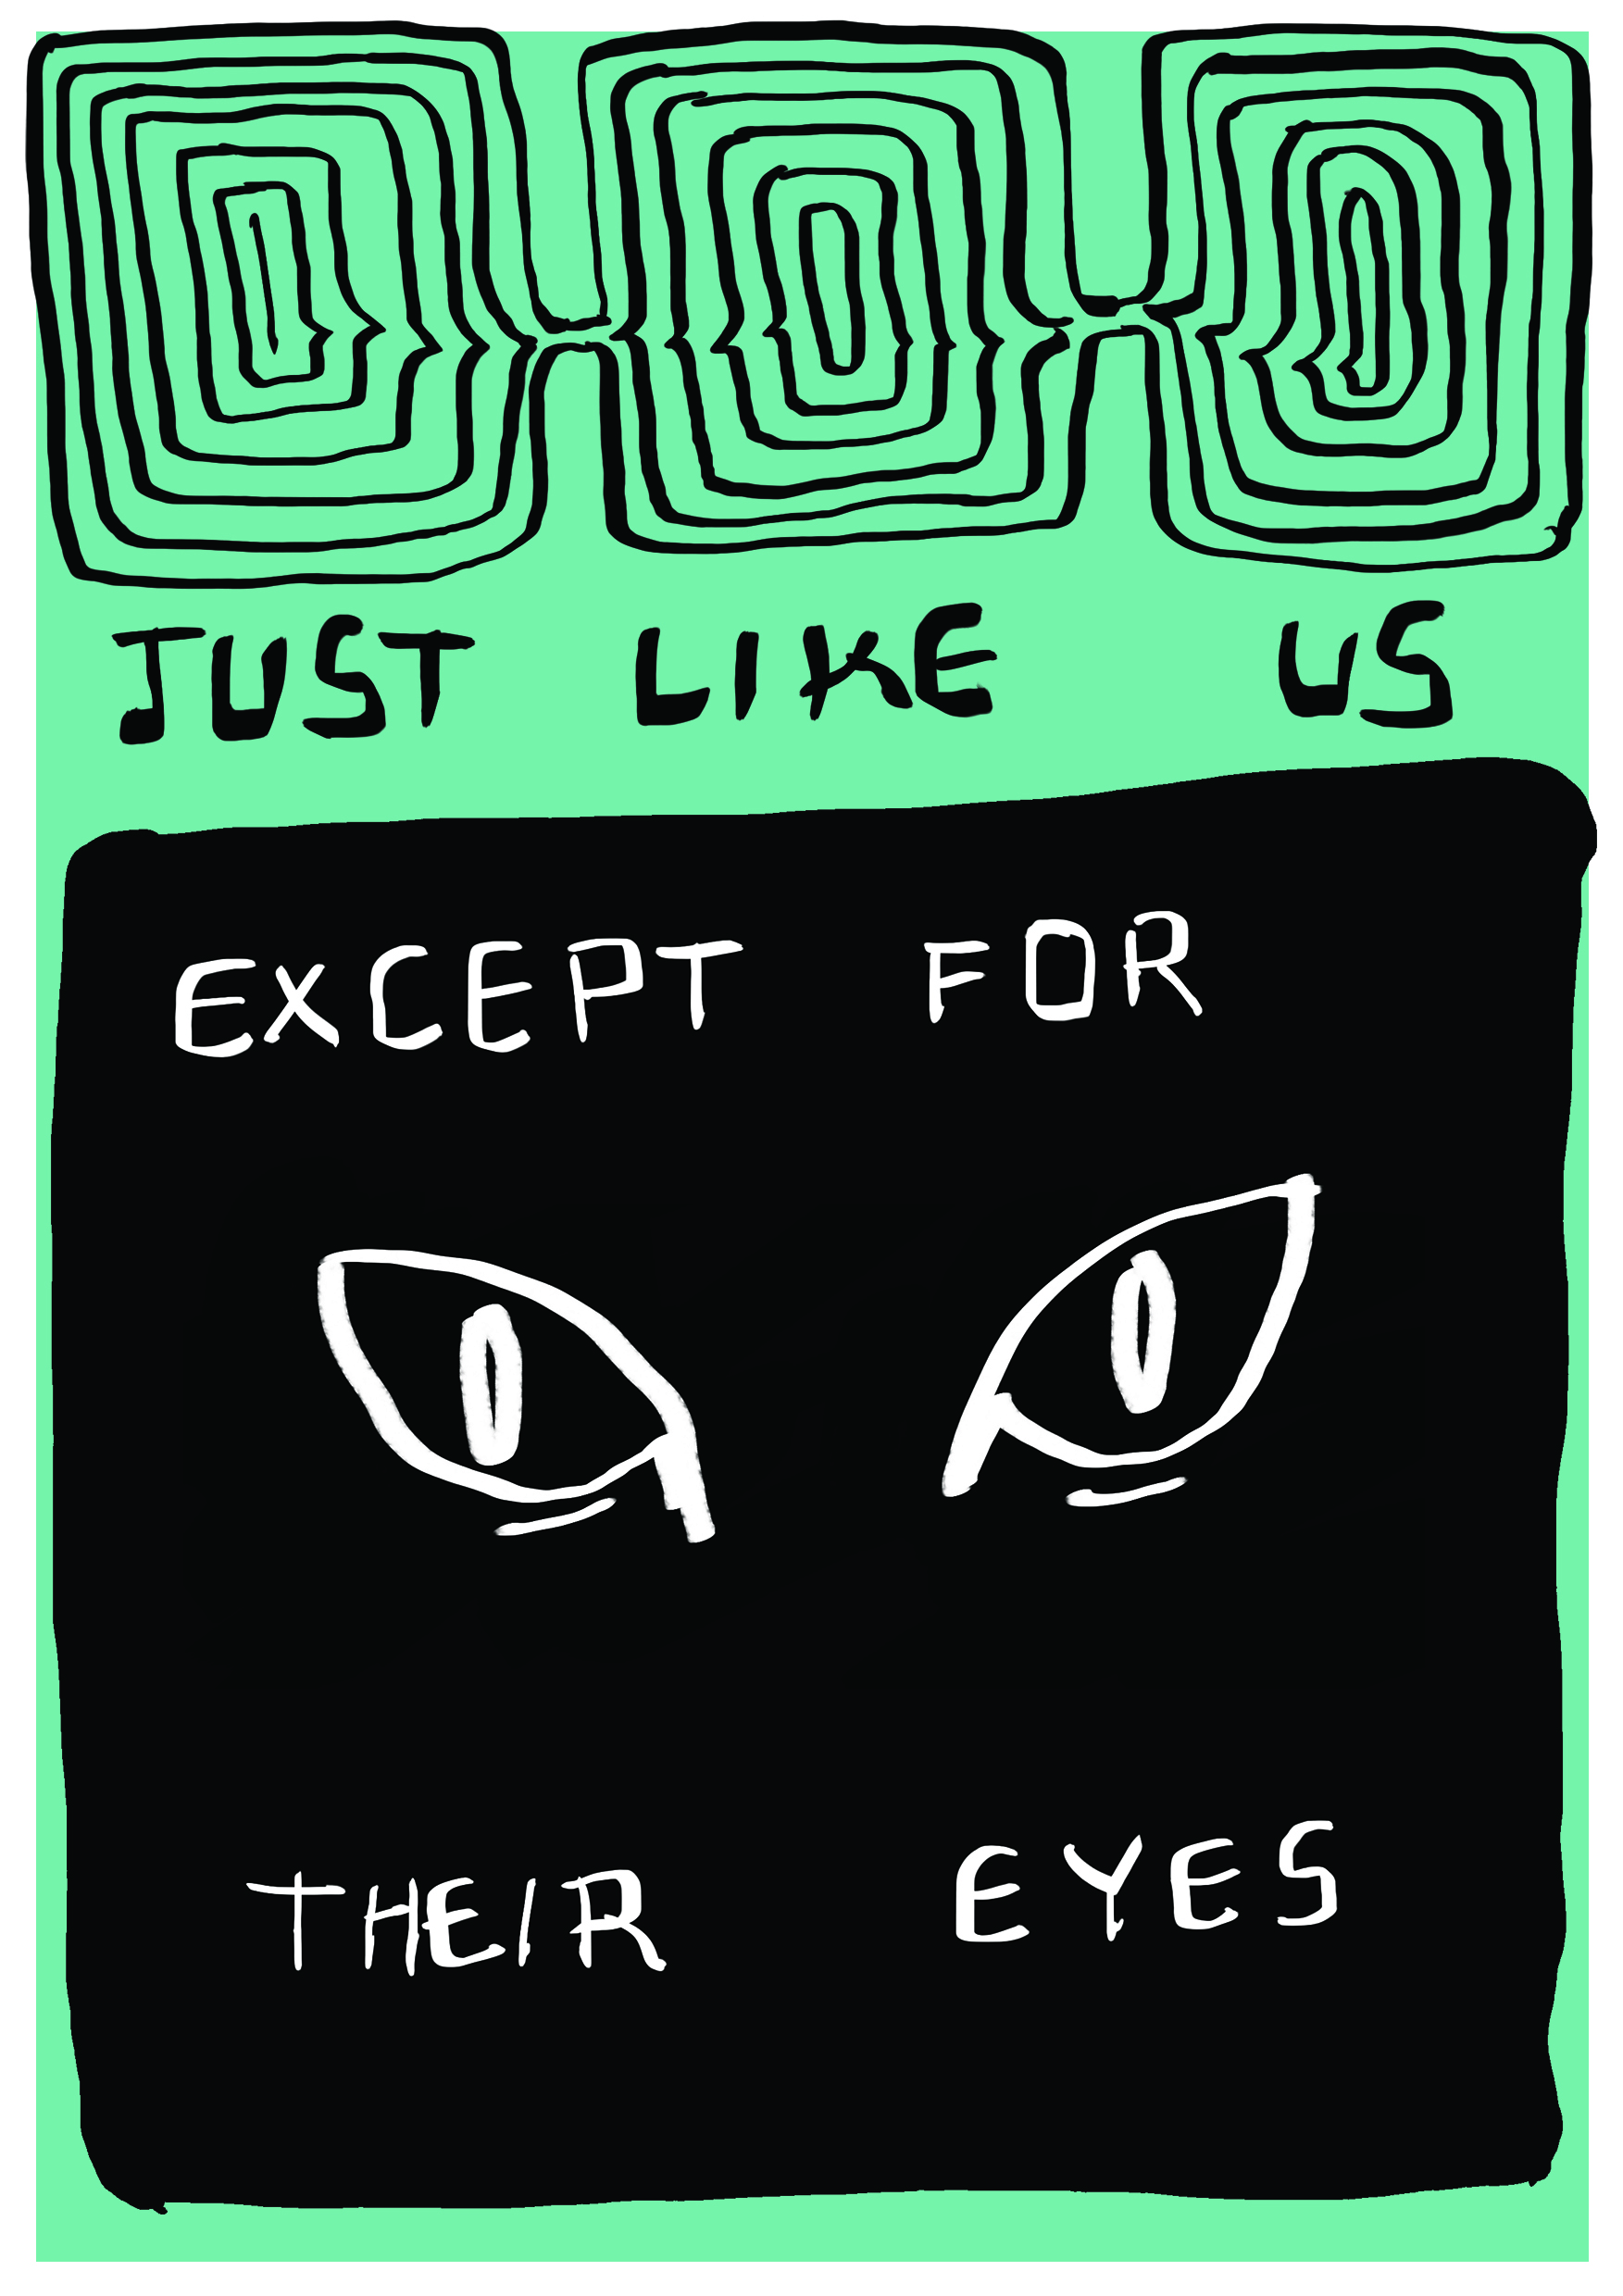 JUST LIKE US
EXCEPT FOR
THEIR EYES